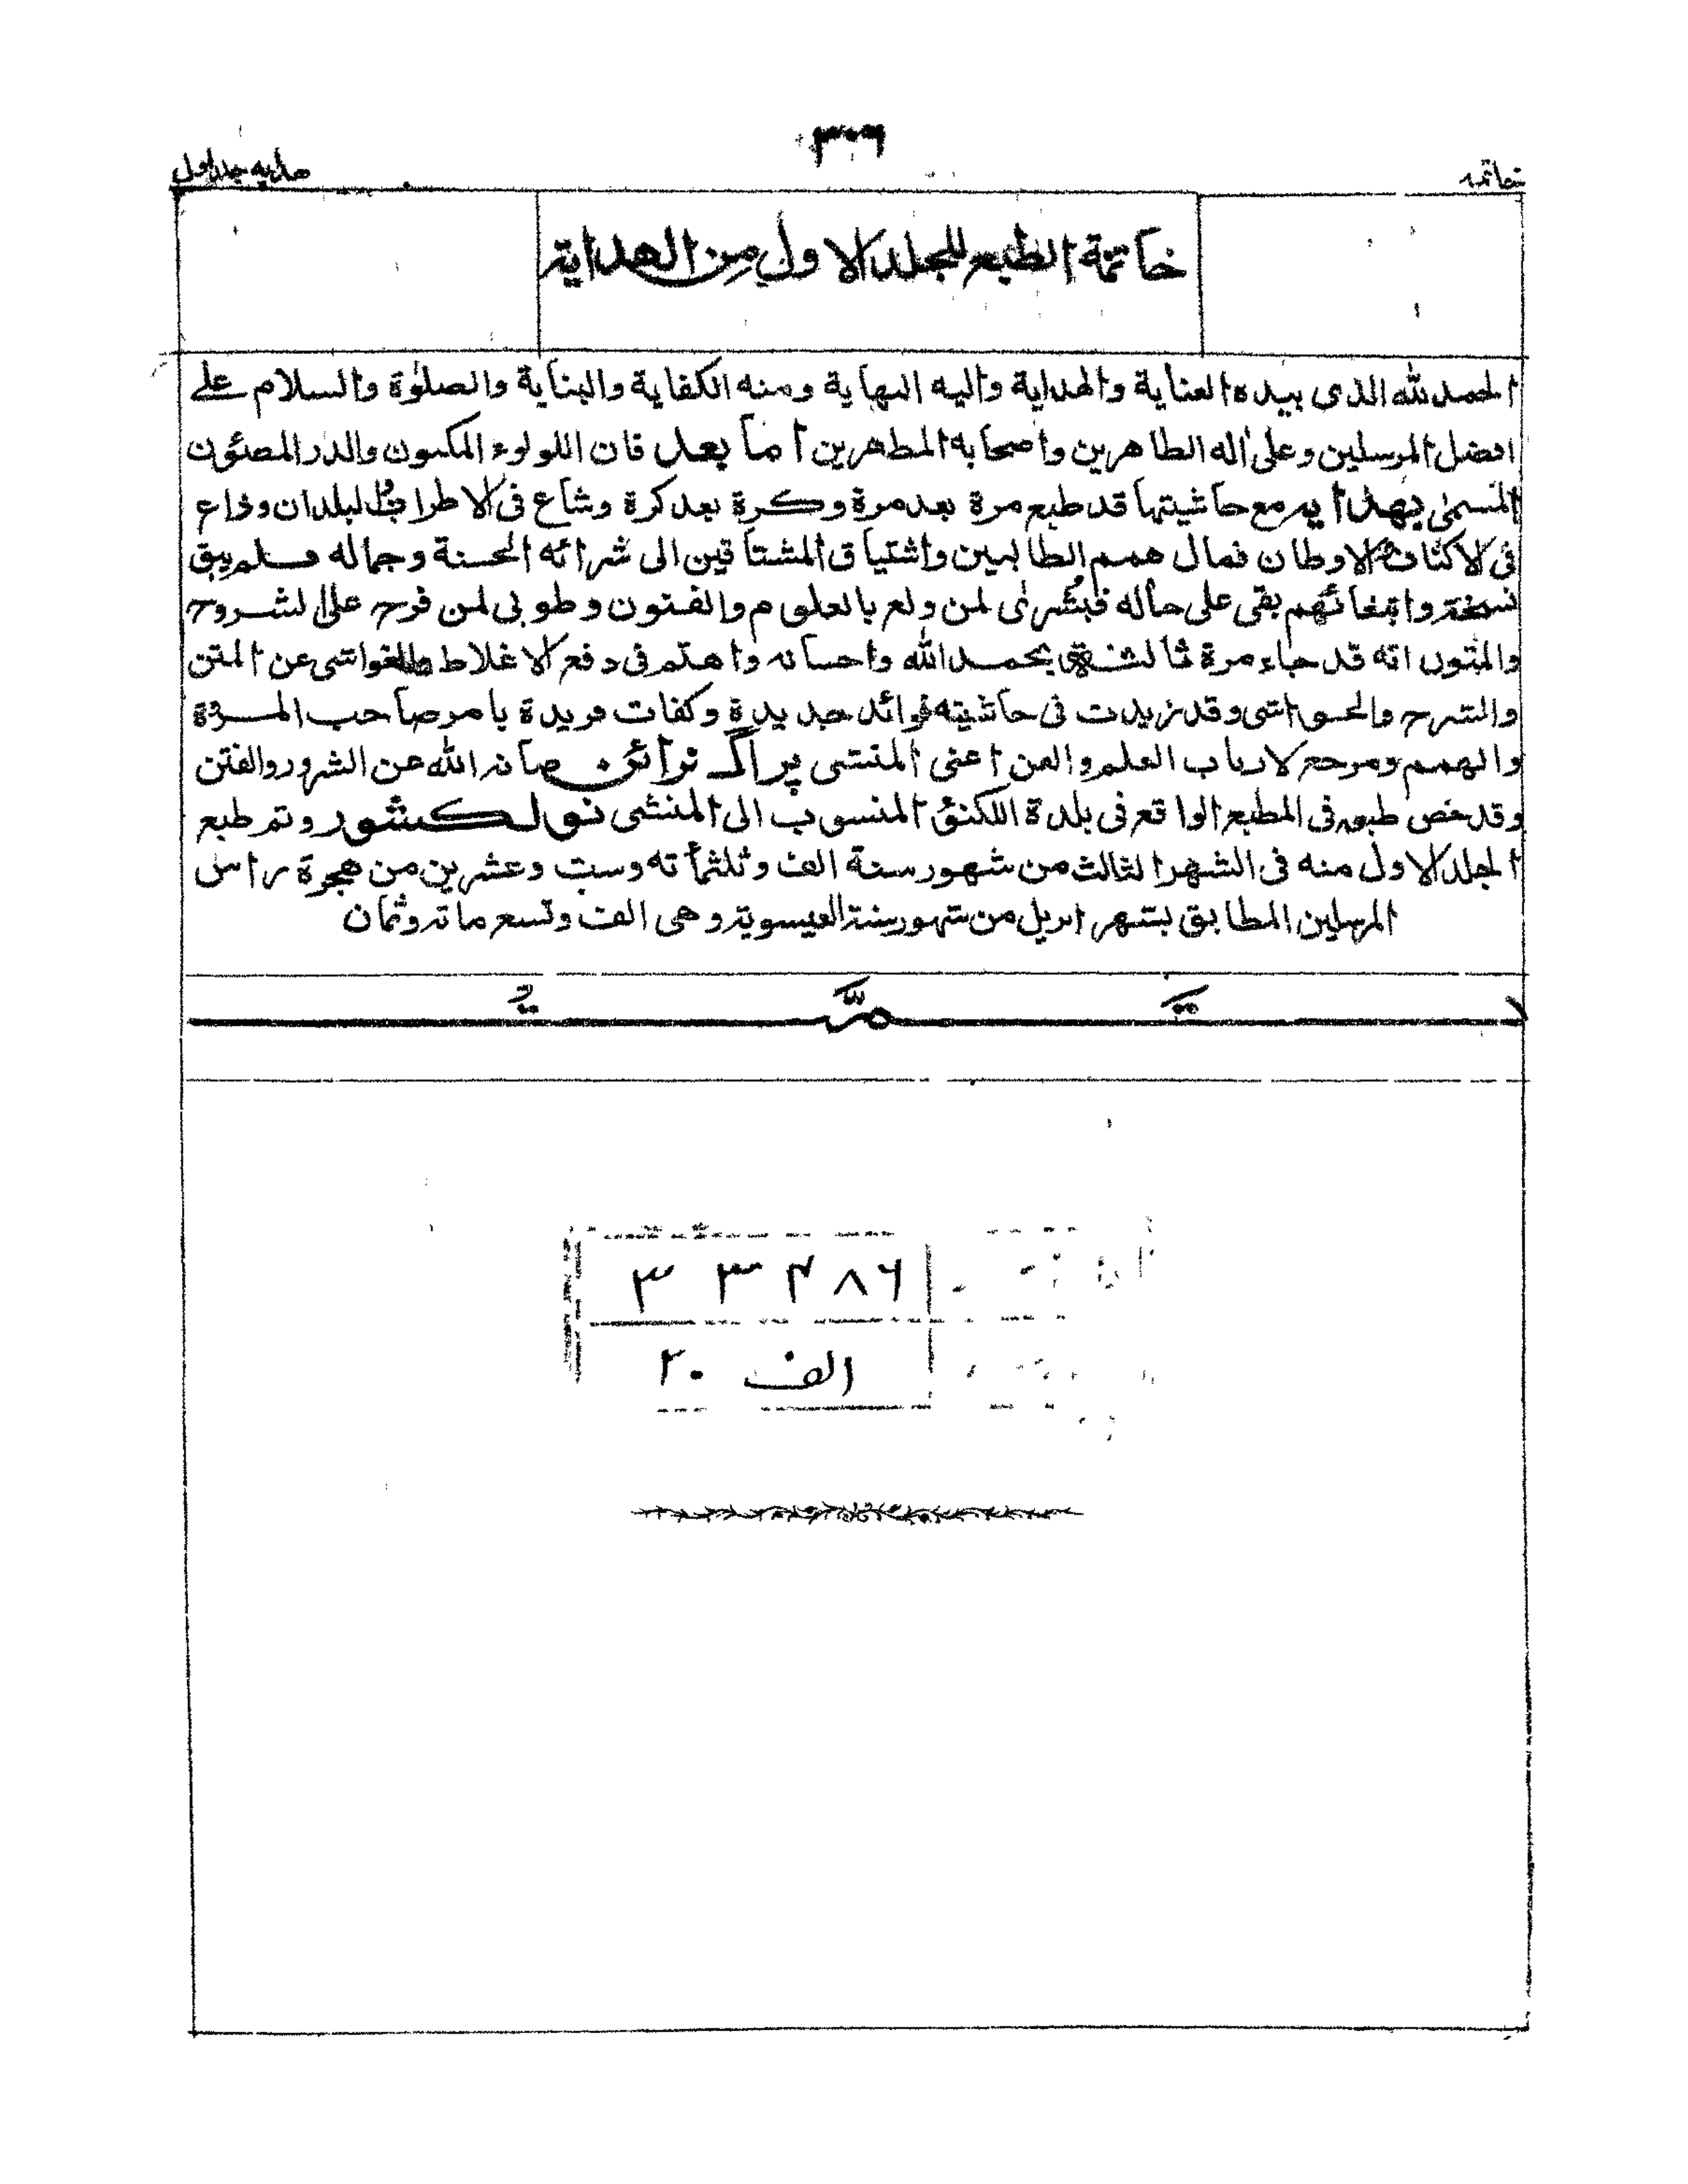 خاتمه
٣٠٦
هدايه جلد اول
خاتمة الطبع للجلد الاول من الهداية
الحمد لله الذى بيده العناية والهداية واليه النهاية ومنه الكفاية والبناية والصلوٰة والسلام على
افضل المرسلين وعلى اله الطاهرين واصحابه المطهرين اما بعد فان اللولوء المكنون والدر المصئون
المسمى بهدايه مع حاشيتها قد طبع مرة بعد مرة وكرة بعد كرة وشاع فى الاطراف البلدان وذاع
فى الاكناف الاوطان فمال همم الطالبين واشتياق المشتاقين الى شرائه الحسنة وجماله فلم يبق
نسخة وابتغائهم بقى على حاله فبشرى لمن ولع بالعلوم والفنون وطوبى لمن فرح على الشروح
والمتون انه قد جاء مرة ثالثة بحمد الله واحسانه واهتم فى دفع الاغلاط والغواشى عن المتن
والشرح والحواشى وقد زيدت فى حاشيته فوائد جديدة وكفات فريدة بامر صاحب المروة
والهمم ومرجع لارباب العلم والفن اعنى المنشى پراگ نرائن صانه الله عن الشرور والفتن
وقد خص طبعه فى المطبع الواقع فى بلدة اللكنئو المنسوب الى المنشى نولكشور وتم طبع
المجلد الاول منه فى الشهر الثالث من شهور سنة الف وثلثمأته وست وعشرين من هجرة راس
المرسلين المطابق بشهر ابريل من شهور سنة العيسوية وهى الف وتسع مائة وثمان
٣٣٤٨٦
الف ٢٠